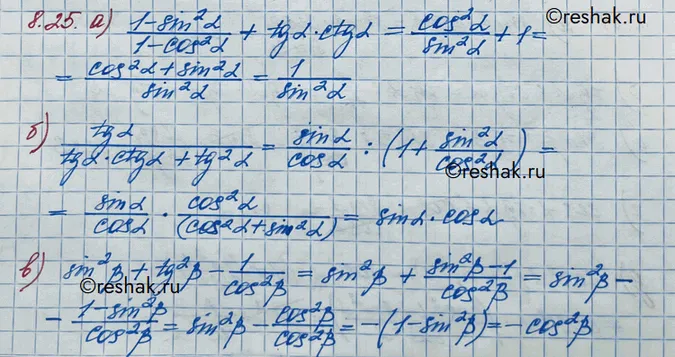 ©reshak.ru
8.25. а) (1-sin²α)/(1-cos²α) + tgα·ctgα = cos²α/sin²α + 1 =
= (cos²α+sin²α)/sin²α = 1/sin²α
б) tgα/(tgα·ctgα + tg²α) = sinα/cosα : (1 + sin²α/cos²α) =
©reshak.ru
= sinα/cosα · cos²α/(cos²α+sin²α) = sinα·cosα
©reshak.ru
в) sin²β + tg²β - 1/cos²β = sin²β + (sin²β-1)/cos²β = sin²β -
- (1-sin²β)/cos²β = sin²β - cos²β/cos²β = -(1-sin²β) = -cos²β